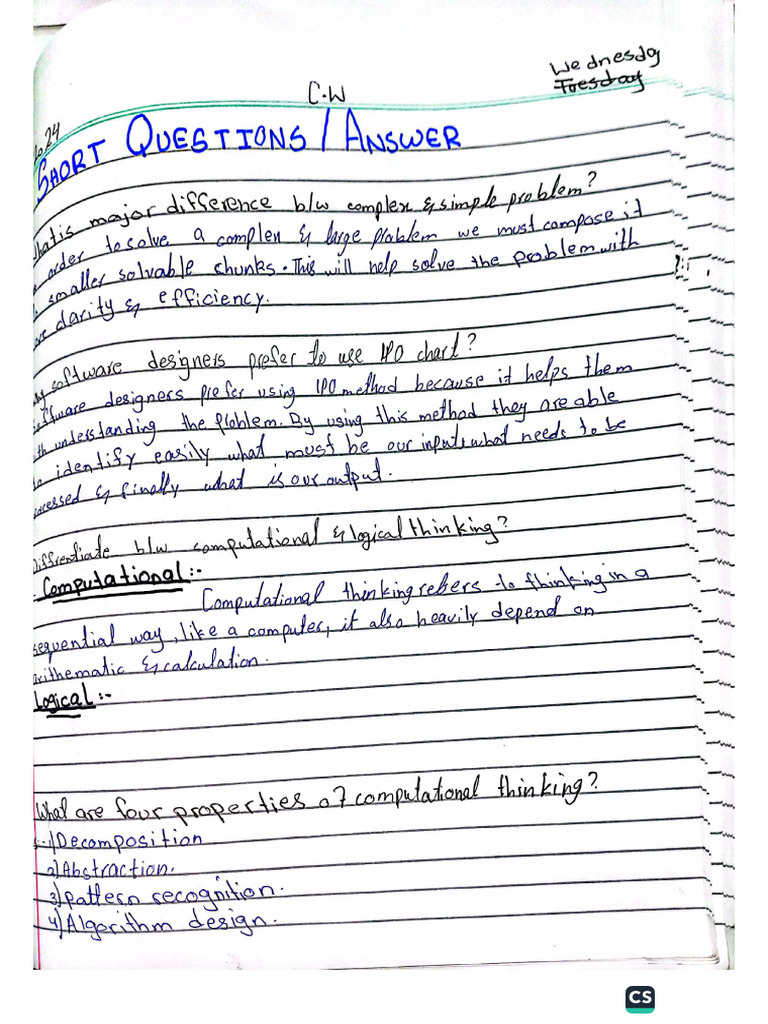 Wednesday
Tuesday
C.W
24
SHORT QUESTIONS / ANSWER
is major difference b/w complex & simple problem?
order to solve a complen & large problem we must compose it
smaller solvable chunks. This will help solve the problem with
clarity & efficiency.
software designers prefer to use IPO chart?
designers prefer using IPO method because it helps them
understanding the problem. By using this method they are able
to identify easily what must be our input & what needs to be
& finally what is our output.
b/w computational & logical thinking?
Computational:-
Computational thinking rebers to thinking in a
sequential way, like a computer, it also heavily depend on
arithematic & calculation.
Logical:-
What are four properties of computational thinking?
1) Decomposition
2) Abstraction.
3) pattern recognition.
4) Algorithm design.
CS